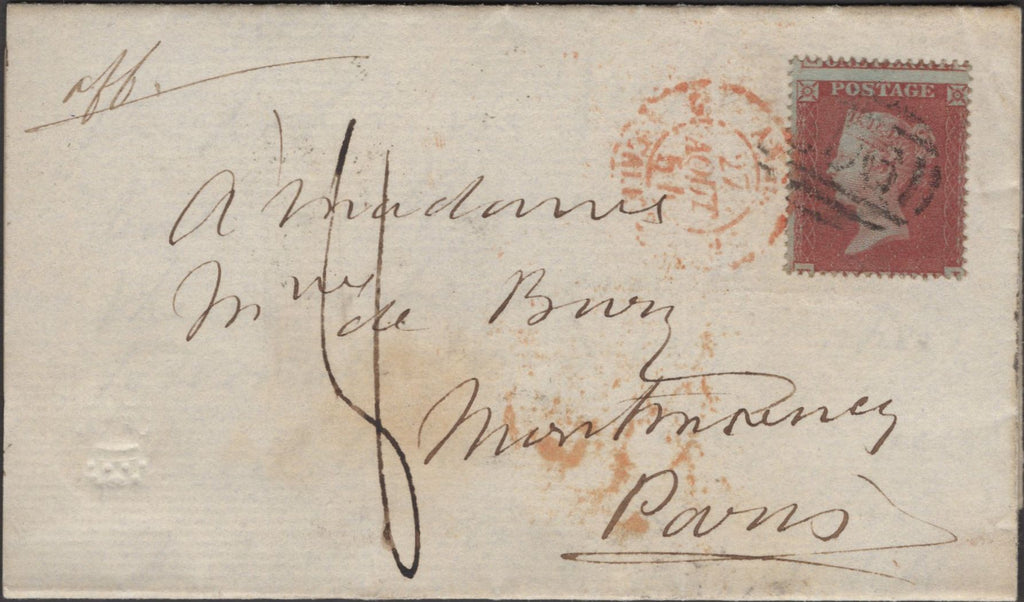 aff.
POSTAGE
27
AOUT
A Madame
Mme de Bury
Montmorency
Paris